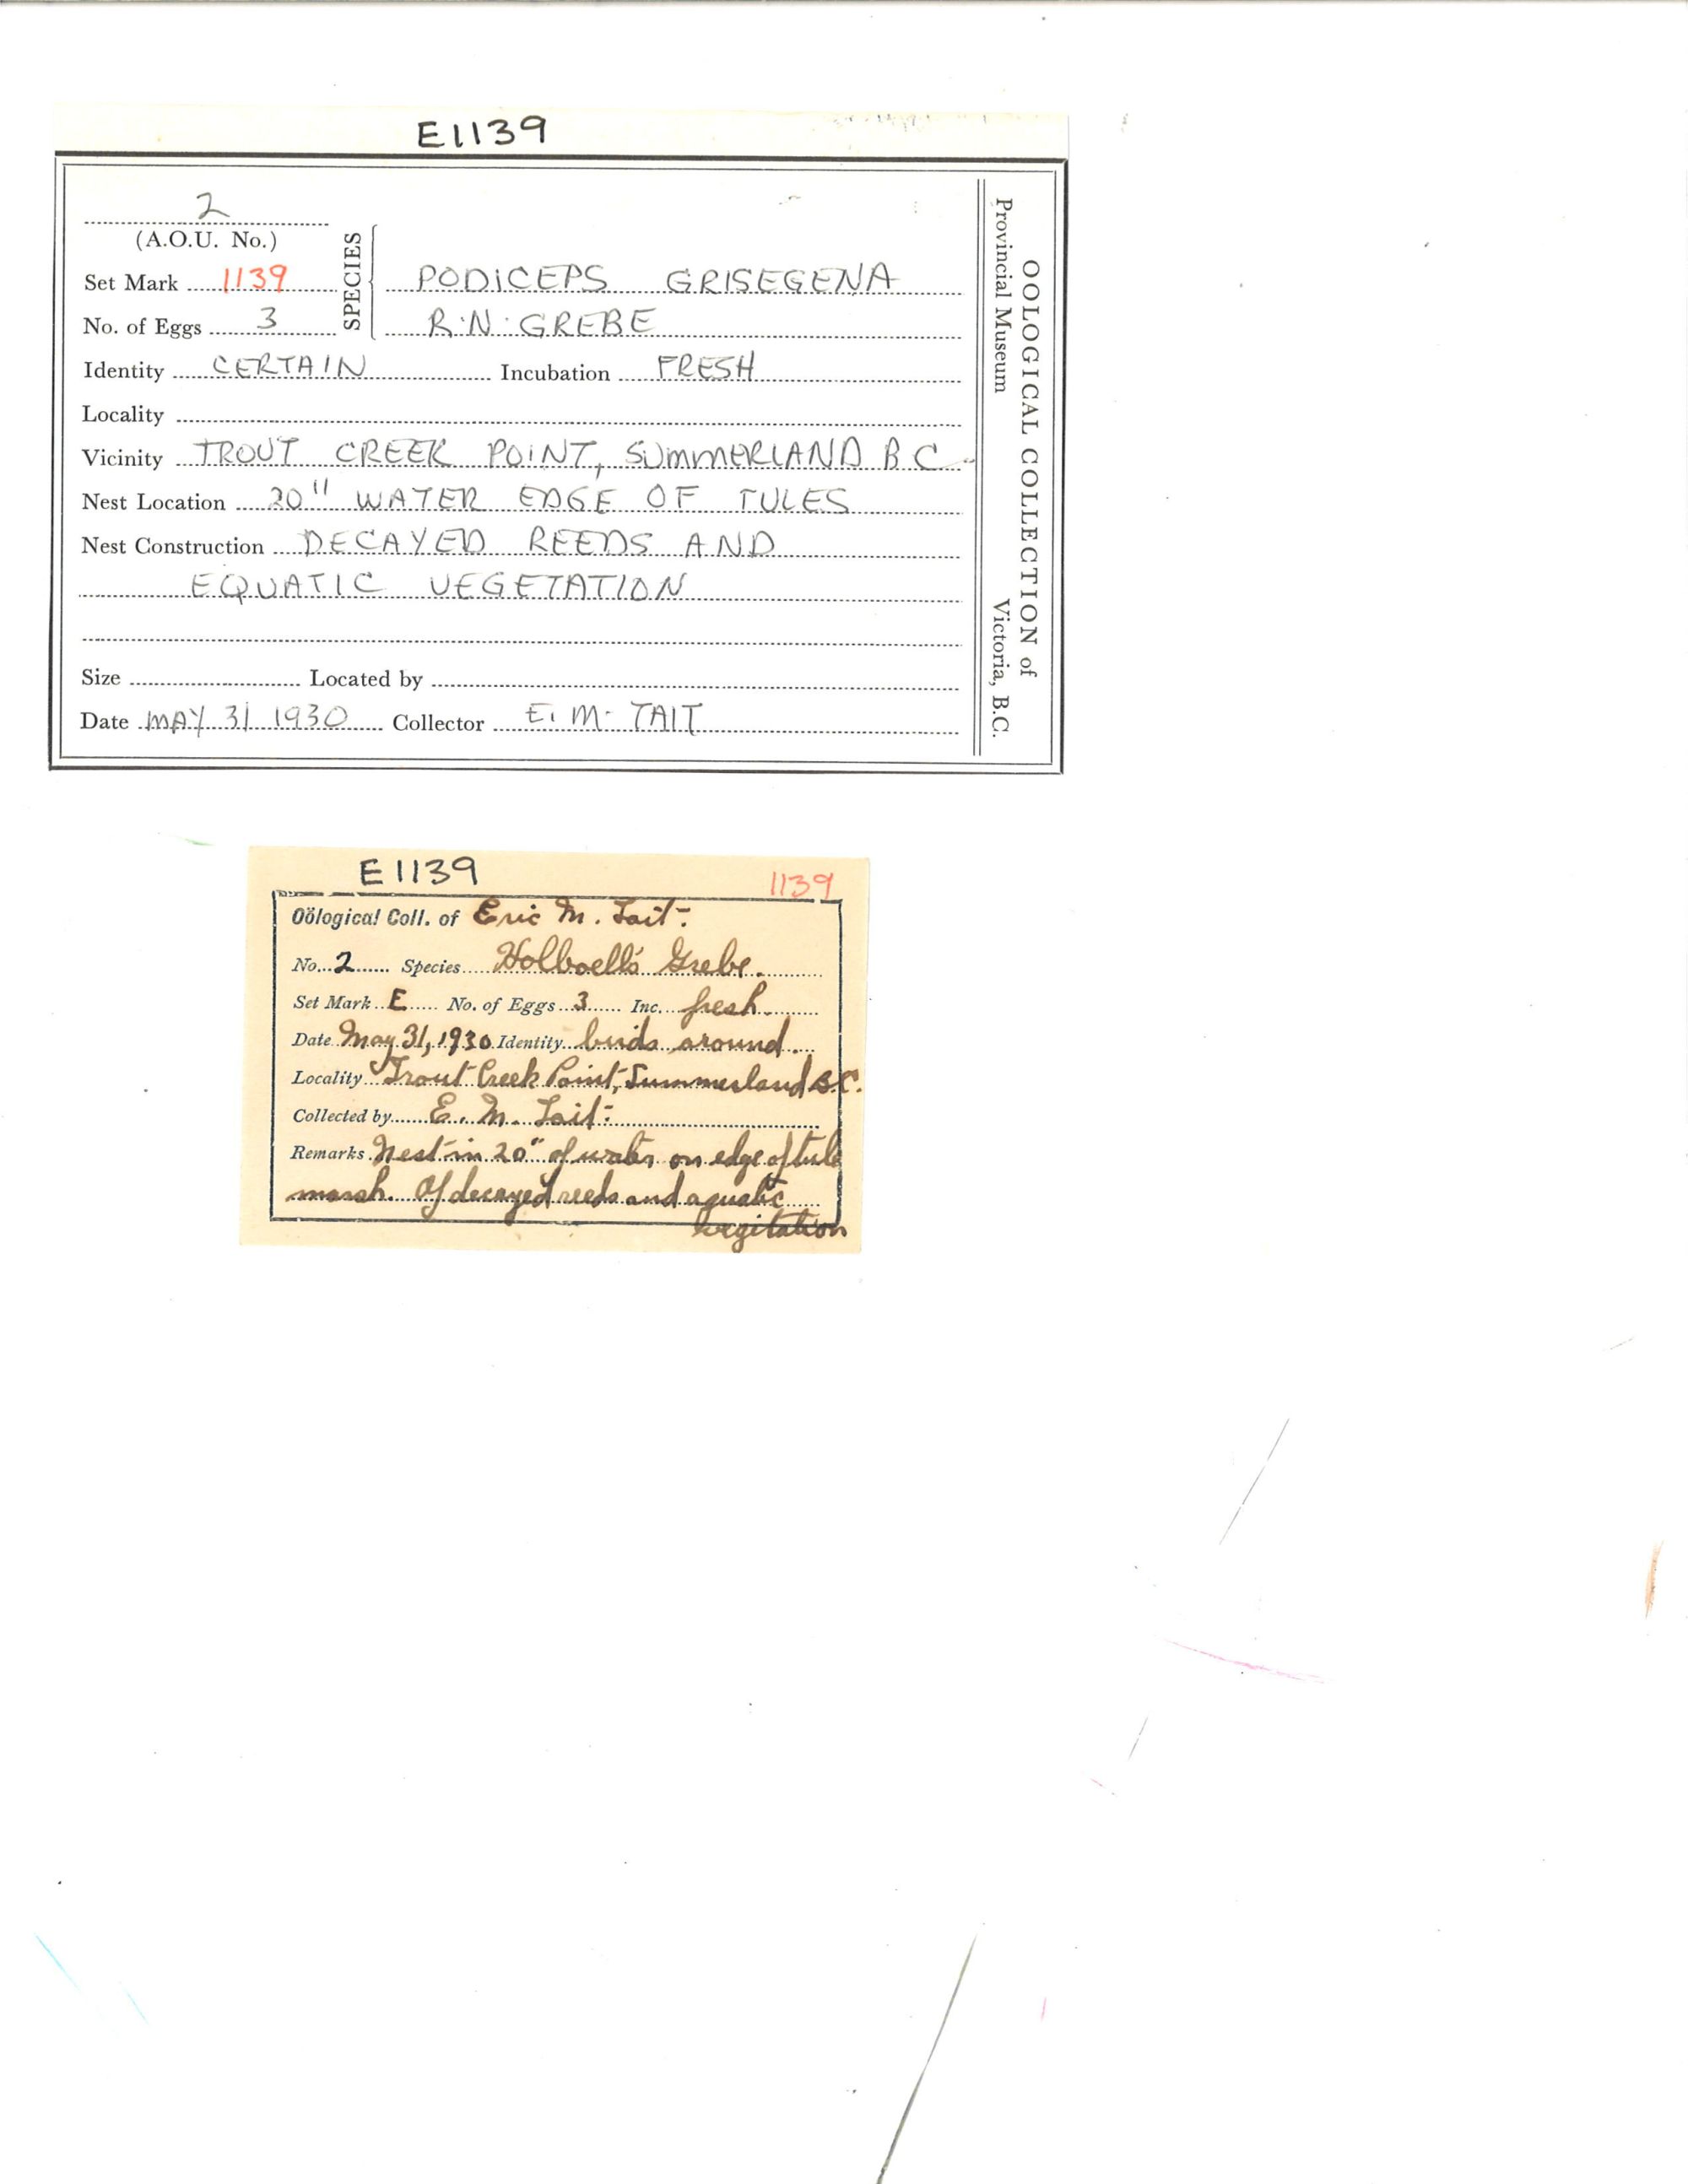 E1139
2
(A.O.U. No.)
SPECIES
Set Mark 1139
PODICEPS GRISEGENA
No. of Eggs 3
R.N. GREBE
Identity CERTAIN Incubation FRESH
Locality
Vicinity TROUT CREEK POINT, SUMMERLAND B C.
Nest Location 20" WATER EDGE OF TULES
Nest Construction DECAYED REEDS AND
EQUATIC VEGETATION
Size Located by
Date MAY 31 1930 Collector E. M. TAIT
OOLOGICAL COLLECTION of
Provincial Museum Victoria, B.C.
E1139 1139
Oölogical Coll. of Eric M. Tait.
No. 2 Species Holboell's Grebe.
Set Mark E No. of Eggs 3 Inc. fresh.
Date May 31, 1930 Identity birds around.
Locality Trout Creek Point, Summerland B.C.
Collected by E. M. Tait.
Remarks Nest in 20" of water on edge of tule
marsh. Of decayed reeds and aquatic
vegitation